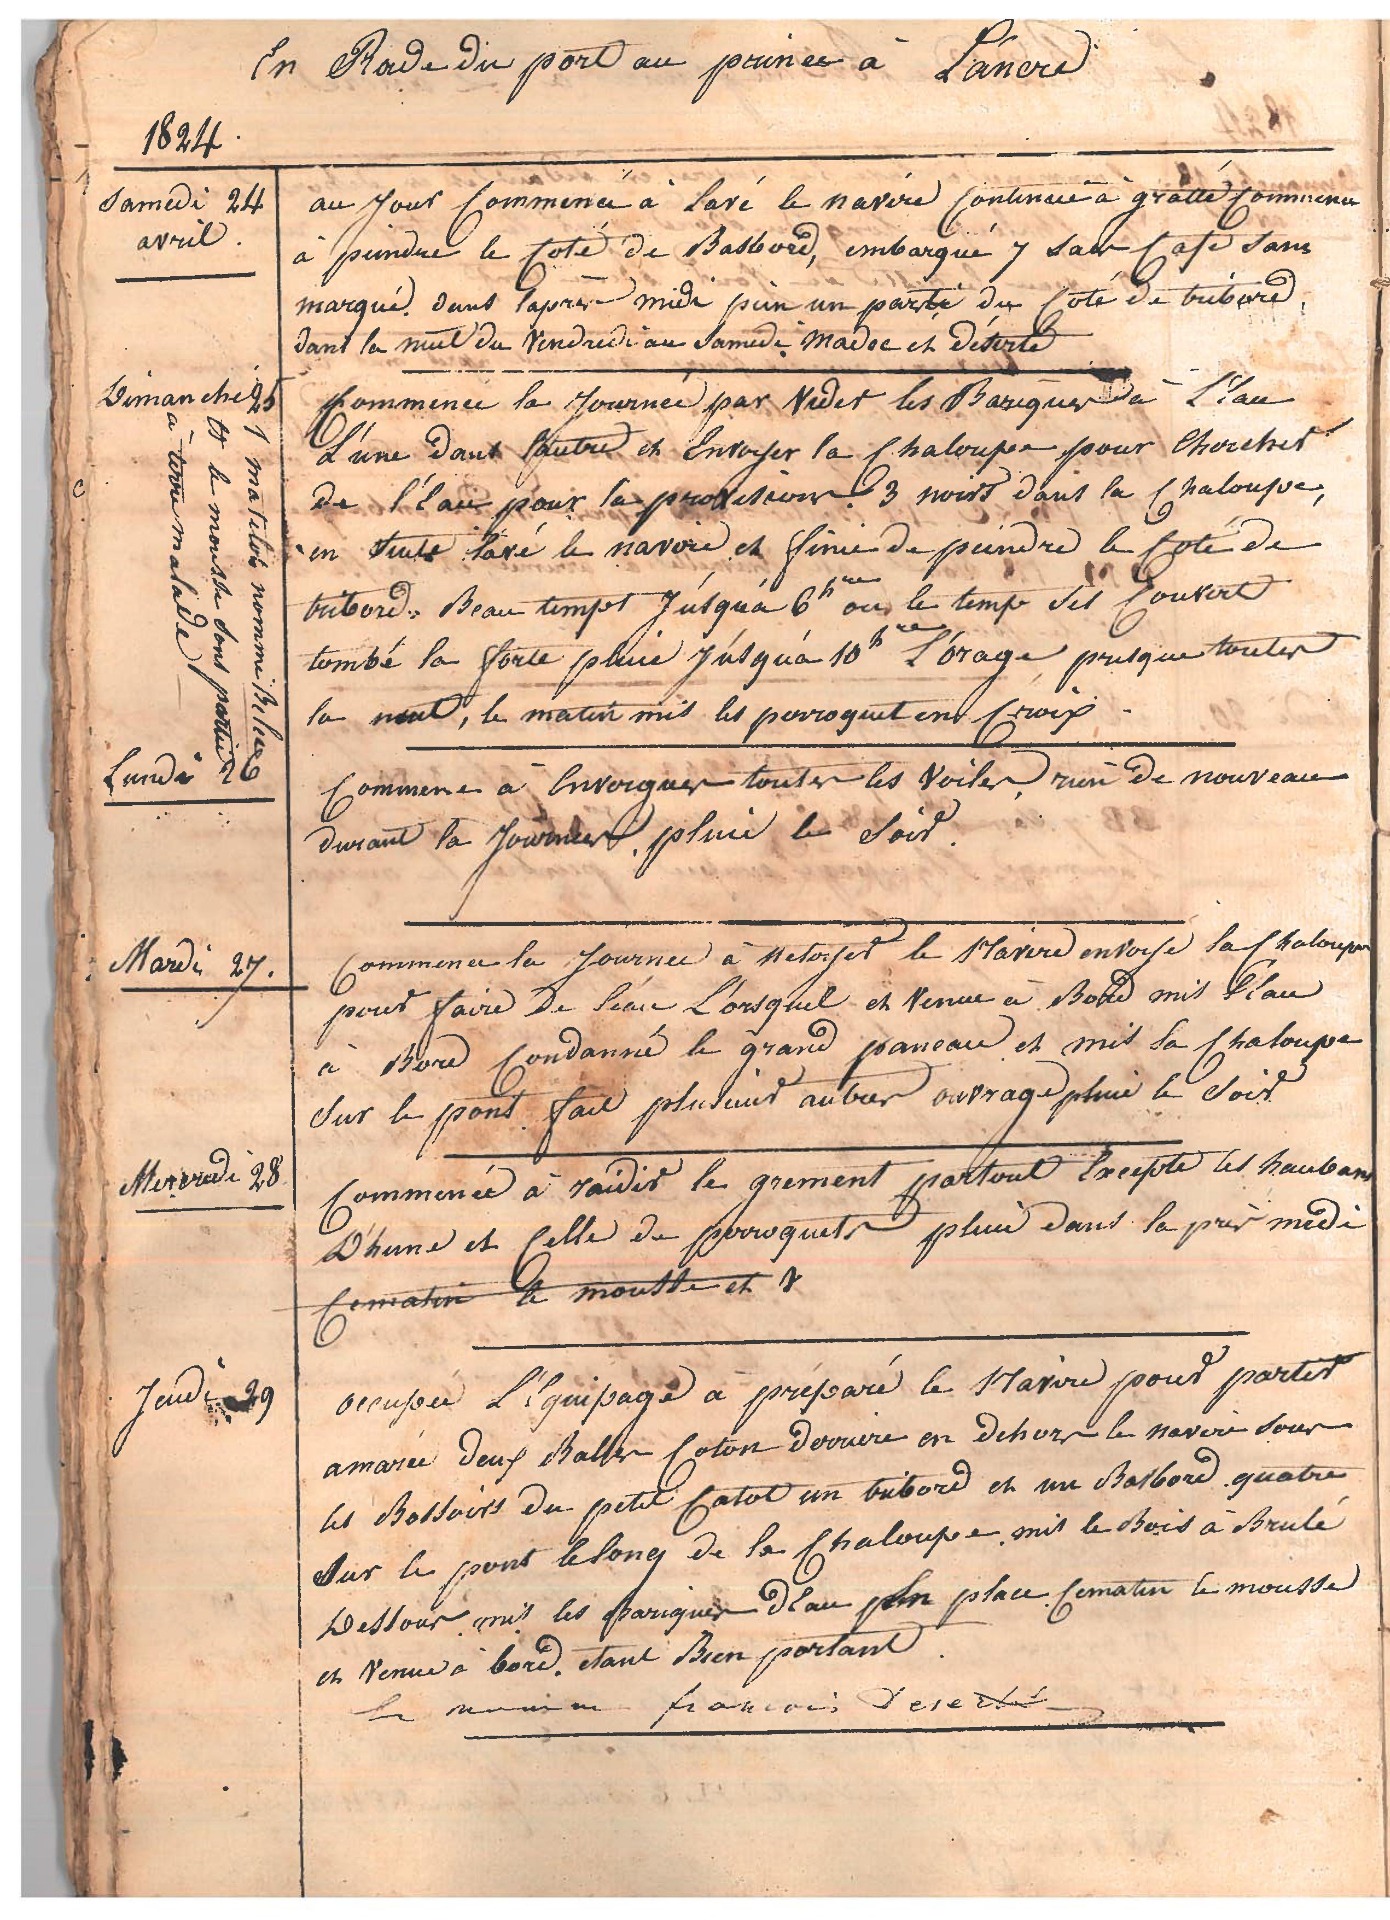 En Rade du port au prince à L'áncre
1824.
Samedi 24
avril.
au Jour Commencé à Lavé le navire Continué à gratté Commencé
à peindre le Coté de Basbord, embarqué 7 Sacs Cafe Sans
marqué. dans laprès midi pein un parti du Coté de tribord,
dans la nuit du Vendredi au Samedi Madec et déserté
Dimanche 25
1 matelot nommé Belec
et le mousse sont partie
à terre malade
Commencé la Journée par Vider les Bariques à L'Eau
L'une dans l'autre et Envoyer la Chaloupe pour Chercher
de l'Eau pour la provisions. 3 noirs dans la Chaloupe,
en Suite lavé le navire et finie de peindre le Coté de
tribord. Beau temps Júsqúà 6 hre ou le temps ses Couvert
tombé la forte pluie Júsqúà 10 hre L'órage presque toutes
la nuit, le matin mis les perroquet en Croix -
Lundi 26
Commence à Envorguer toutes les Voiles, rien de nouveau
durant la Journee. pluie le Soir.
Mardi 27.
Commence la Journee à netoyer le Navire envoyé la Chaloupe
pour faire de l'éau L'orsquel et Venue à Bord mis l'Eau
à Bord Condanné le grand paneau et mis la Chaloupe
Sur le pont fait plusieurs autres ouvrage pluie le Soir
Mercredi 28
Commencé à raidir le grement partout Excepté les haubans
D'hune et Celle de perroquets pluie dans la près medi
Cematin le mousse et V
Jeudi 29
occupée L'Equipage à préparé le Navire pour partir
amarée deux Balles Coton derriere en dehors le navire Sous
les Bossoirs du petit Catot un tribord et un Basbord. quatre
Sur le pont lelong de la Chaloupe. mis le Bois à Brulé
Dessous. mis les bariques dEau en place. Cematin le mousse
et Venue à bord. étant Bien portant.
le nomme francois Deserté